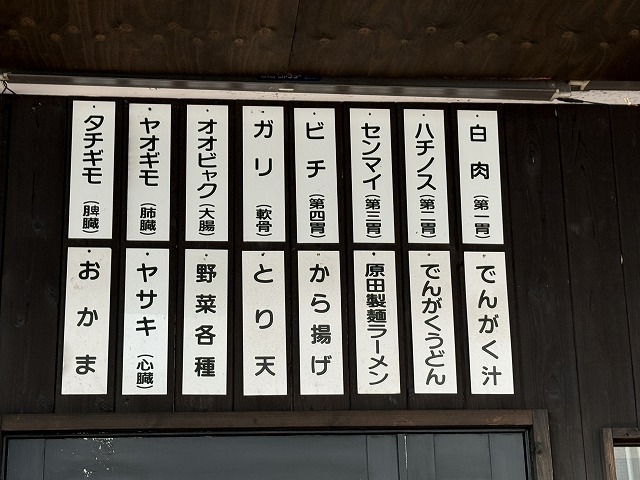 白肉（第一胃）
ハチノス（第二胃）
センマイ（第三胃）
ビチ（第四胃）
ガリ（軟骨）
オオビャク（大腸）
ヤオギモ（肺臓）
タチギモ（脾臓）
でんがく汁
でんがくうどん
原田製麺ラーメン
から揚げ
とり天
野菜各種
ヤサキ（心臓）
おかま